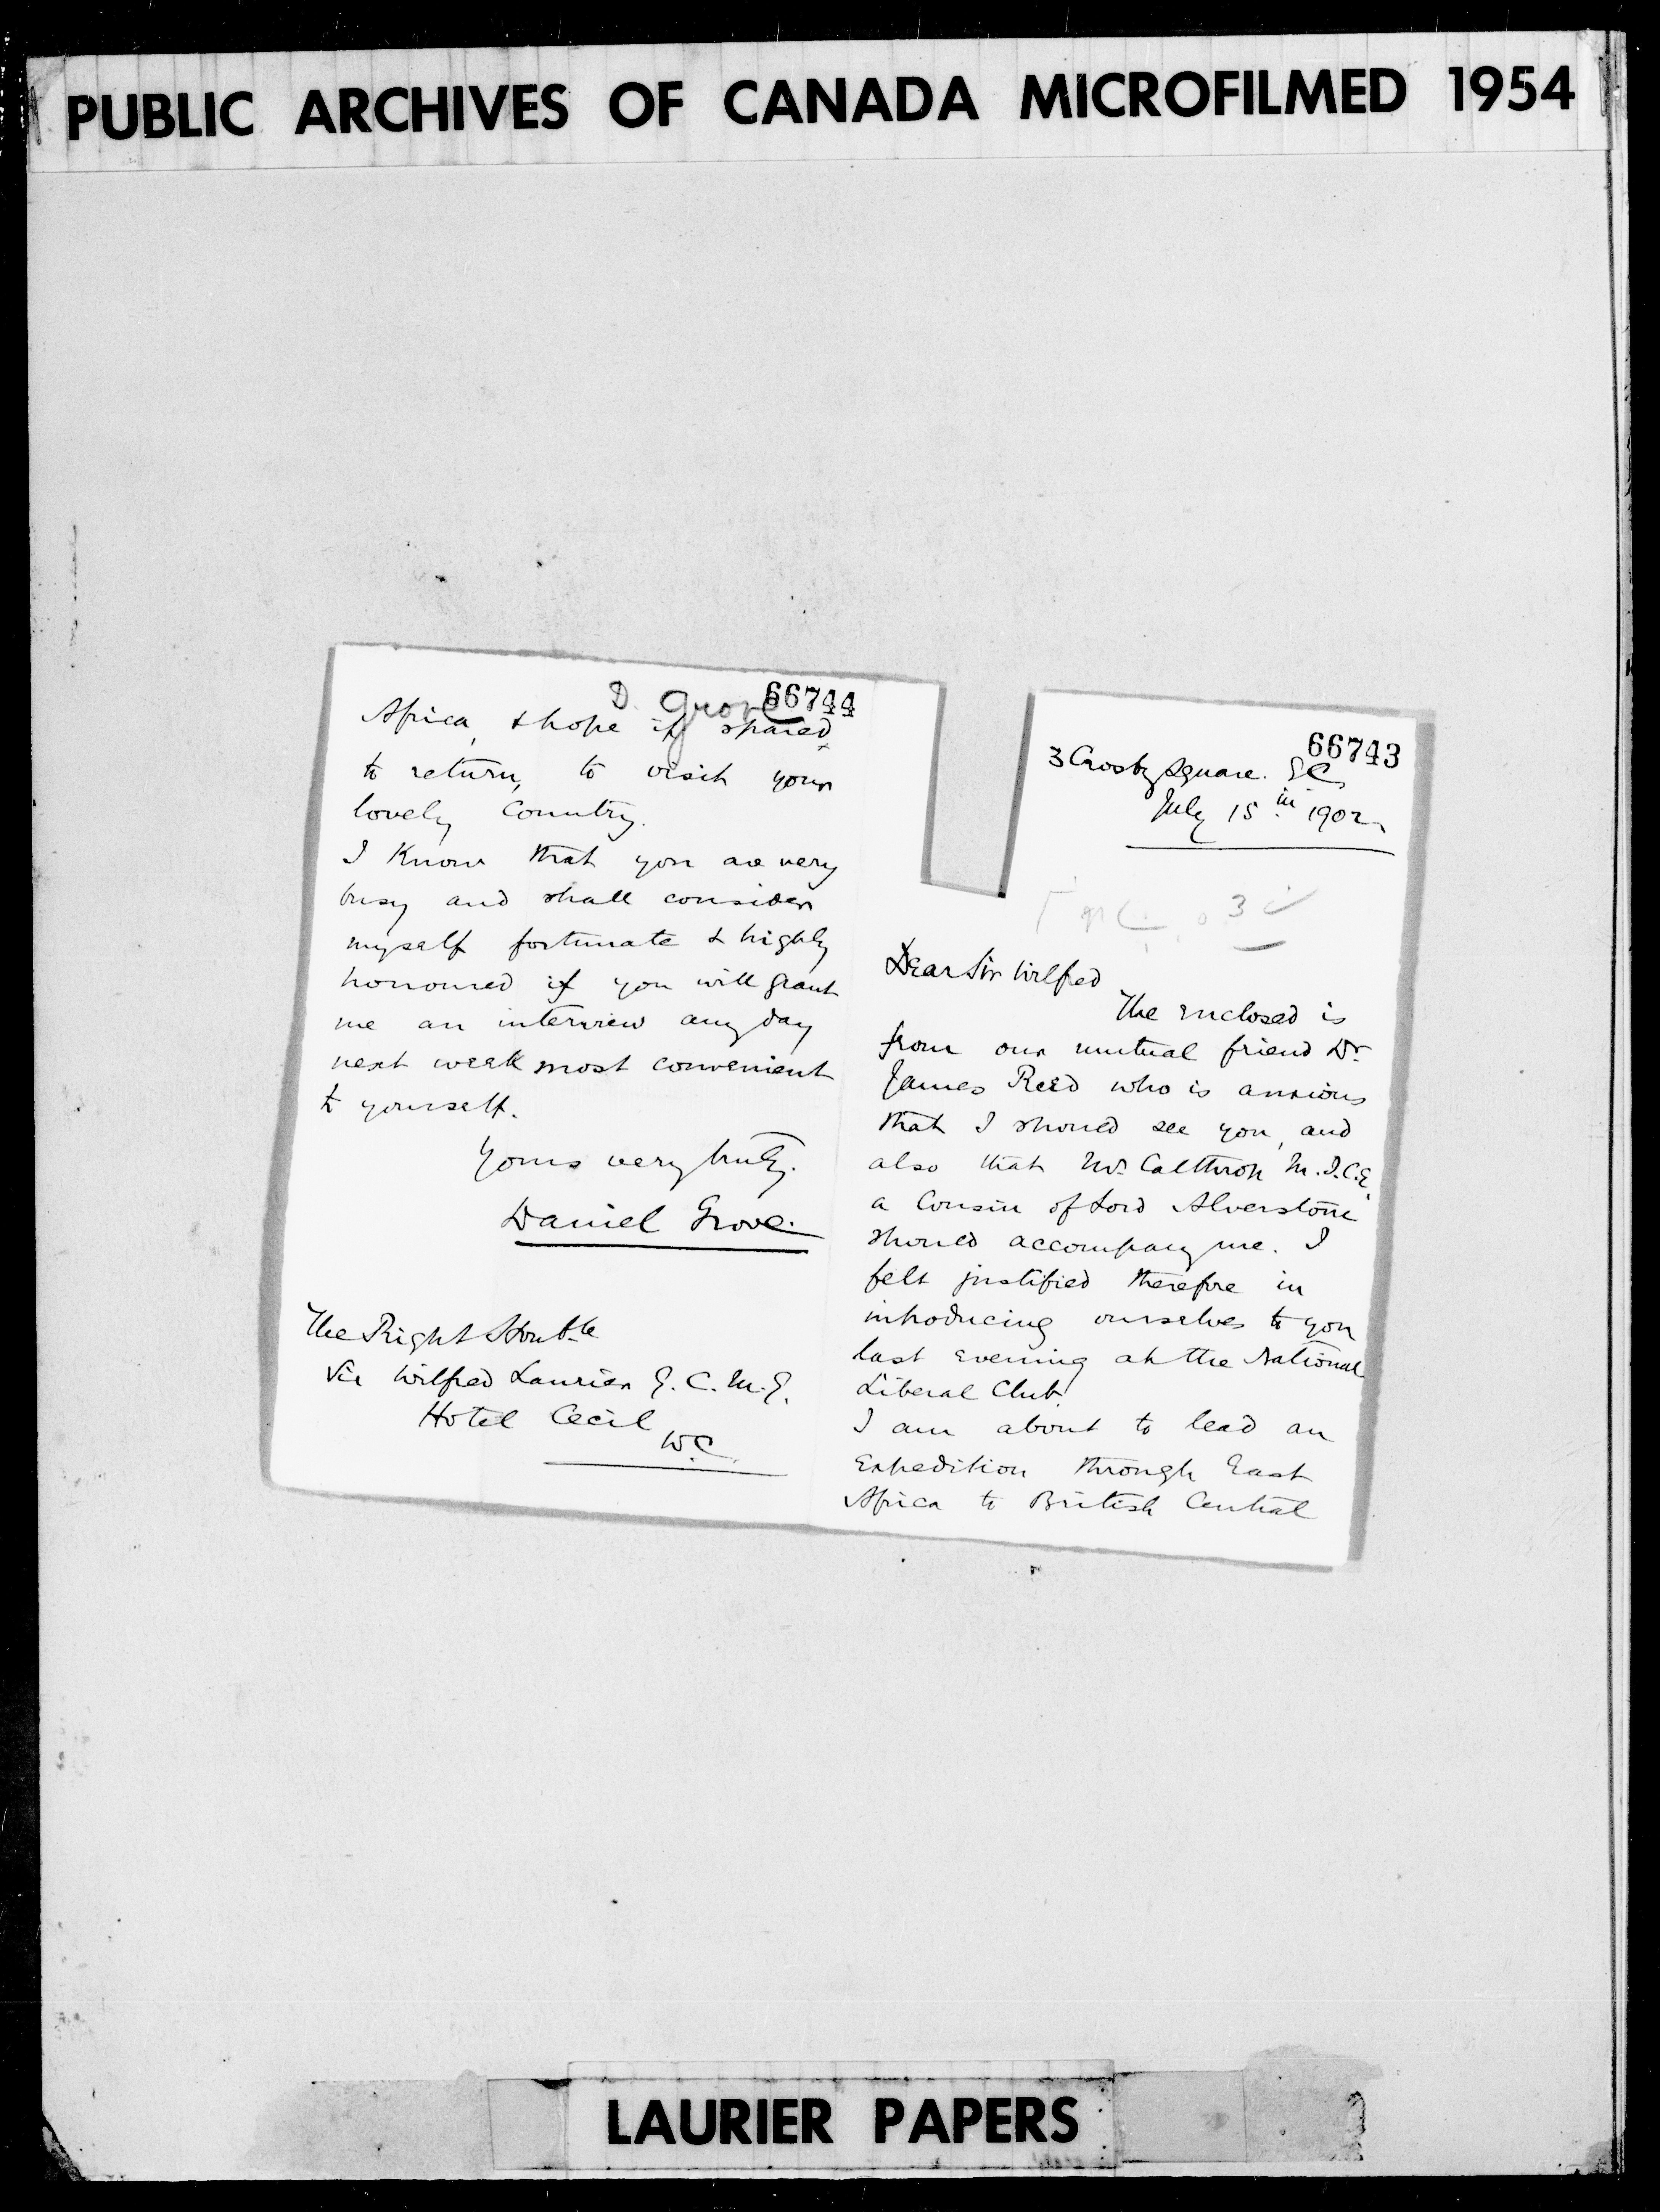 PUBLIC ARCHIVES OF CANADA MICROFILMED 1954
66743
3 Crosby Square. E.C.
July 15th 1902
Dear Sir Wilfred
The enclosed is
from our mutual friend Dr.
James Reed who is anxious
that I should see you, and
also that Mr. Calthrop M.I.C.E.
a Cousin of Lord Alverstone
should accompany me. I
felt justified therefore in
introducing ourselves to you
last evening at the National
Liberal Club.
I am about to lead an
Expedition through East
Africa to British Central
66744
D. Grove
Africa, & hope if spared
to return, to visit your
lovely Country.
I know that you are very
busy and shall consider
myself fortunate & highly
honoured if you will grant
me an interview any day
next week most convenient
to yourself.
Yours very truly.
Daniel Grove.
The Right Honble
Sir Wilfred Laurier G.C.M.G.
Hotel Cecil
W.C.
LAURIER PAPERS